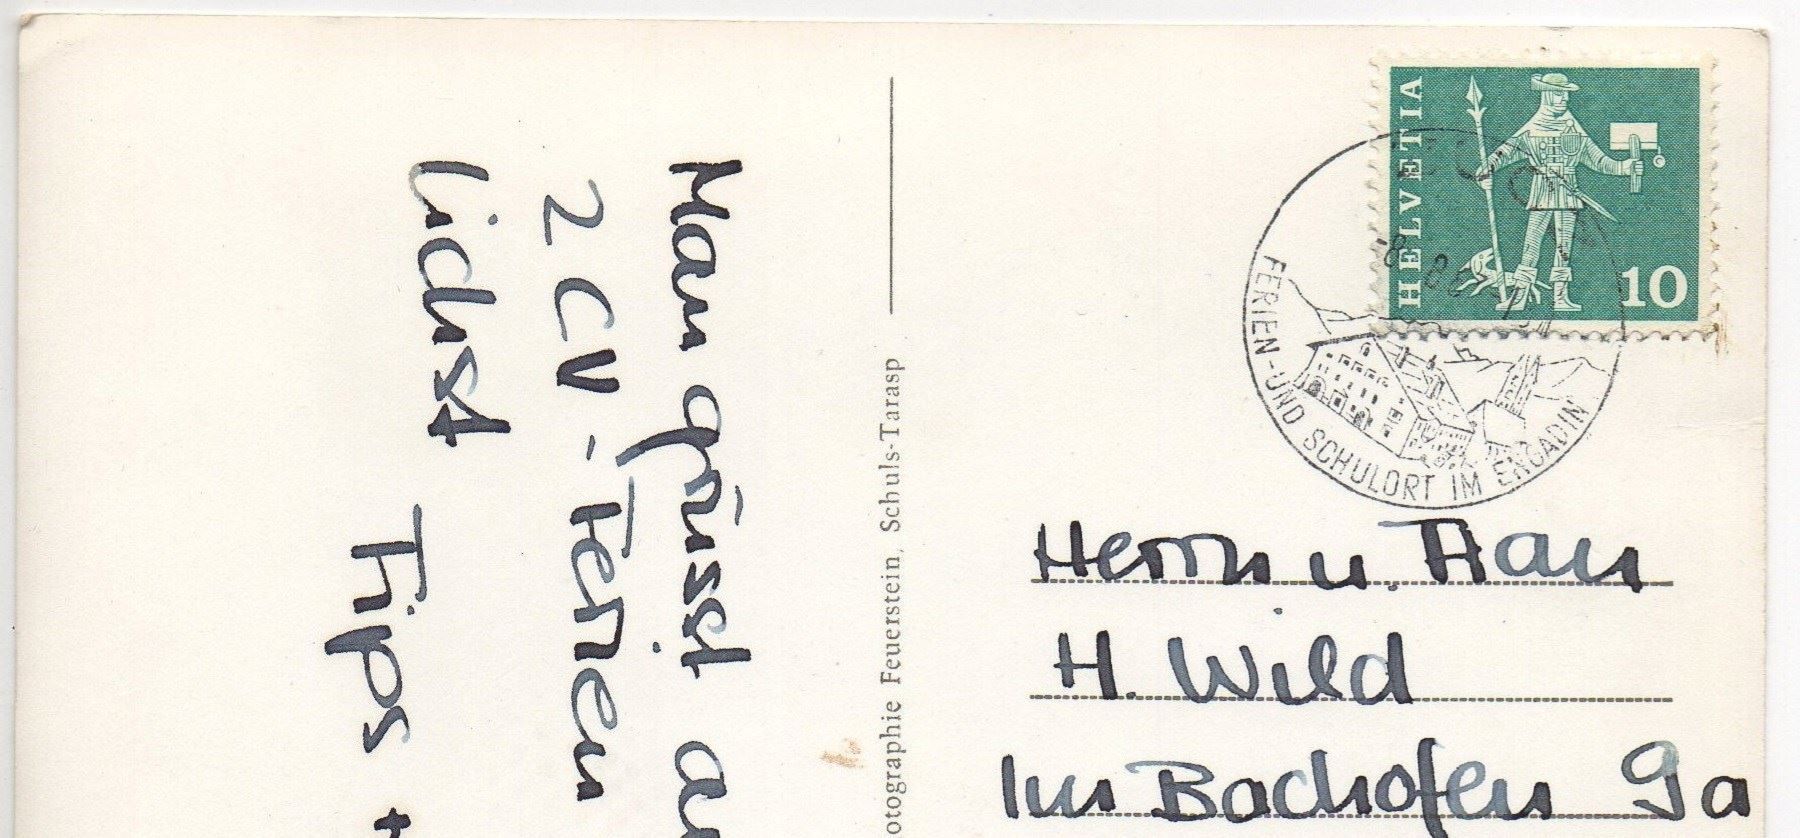 Man grüsst au
2 CV-Ferien
lichst
Tips
otographie Feuerstein, Schuls-Tarasp
HELVETIA
10
FERIEN-UND SCHULORT IM ENGADIN
Herrn u. Frau
H. Wild
Im Bachofen 9a